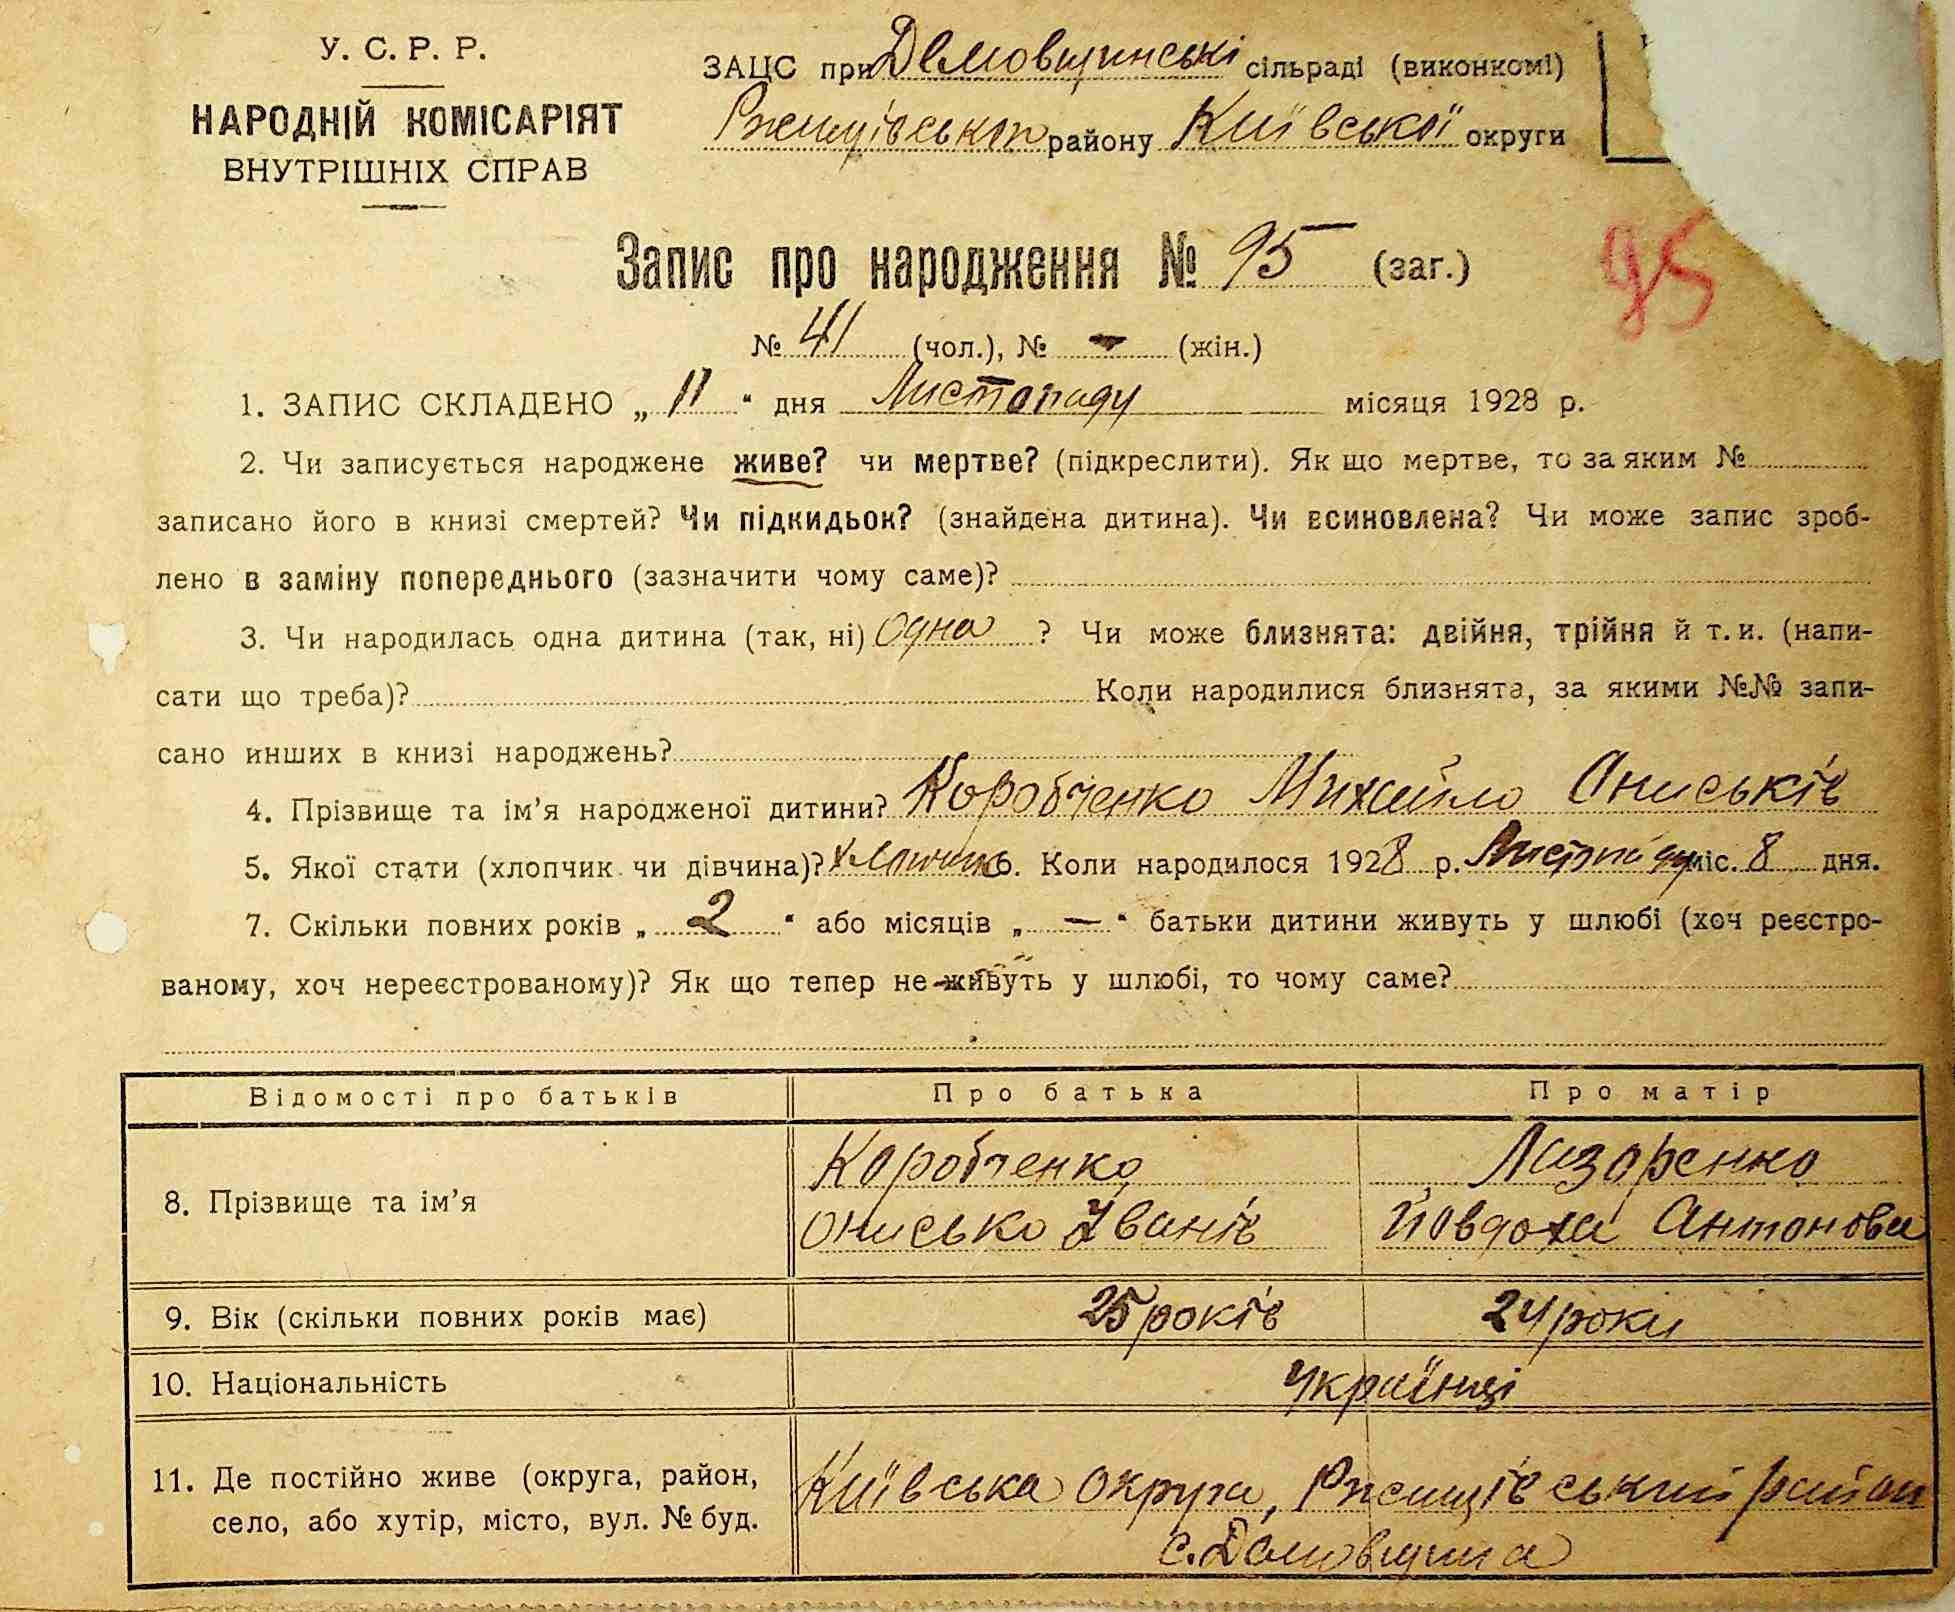 У. С. Р. Р.
НАРОДНІЙ КОМІСАРІЯТ
ВНУТРІШНІХ СПРАВ
ЗАЦС при Демовщинські сільраді (виконкомі)
Ржищівськог району Київської округи
Запис про народження № 95 (заг.)
95
№ 41 (чол.), № - (жін.)
1. ЗАПИС СКЛАДЕНО „ 11 “ дня Листопаду місяця 1928 р.
2. Чи записується народжене живе? чи мертве? (підкреслити). Як що мертве, то за яким №
записано його в книзі смертей? Чи підкидьок? (знайдена дитина). Чи всиновлена? Чи може запис зроб-
лено в заміну попереднього (зазначити чому саме)?
3. Чи народилась одна дитина (так, ні) Одна ? Чи може близнята: двійня, трійня й т. и. (напи-
сати що треба)? Коли народилися близнята, за якими №№ запи-
сано инших в книзі народжень?
4. Прізвище та ім’я народженої дитини? Коробченко Михайло Ониськів
5. Якої стати (хлопчик чи дівчина)? Хлопчик 6. Коли народилося 1928 р. Листопаду міс. 8 дня.
7. Скільки повних років „ 2 “ або місяців „ — “ батьки дитини живуть у шлюбі (хоч реєстро-
ваному, хоч нереєстрованому)? Як що тепер не живуть у шлюбі, то чому саме?
Відомості про батьків Про батька Про матір
8. Прізвище та ім’я
Коробченко
Онисько Іванів
Лазоренко
Йовдоха Антонова
9. Вік (скільки повних років має) 25 років 24 роки
10. Національність Українці
11. Де постійно живе (округа, район,
село, або хутір, місто, вул. № буд.
Київська округа, Ржищівський район
с. Демовщина